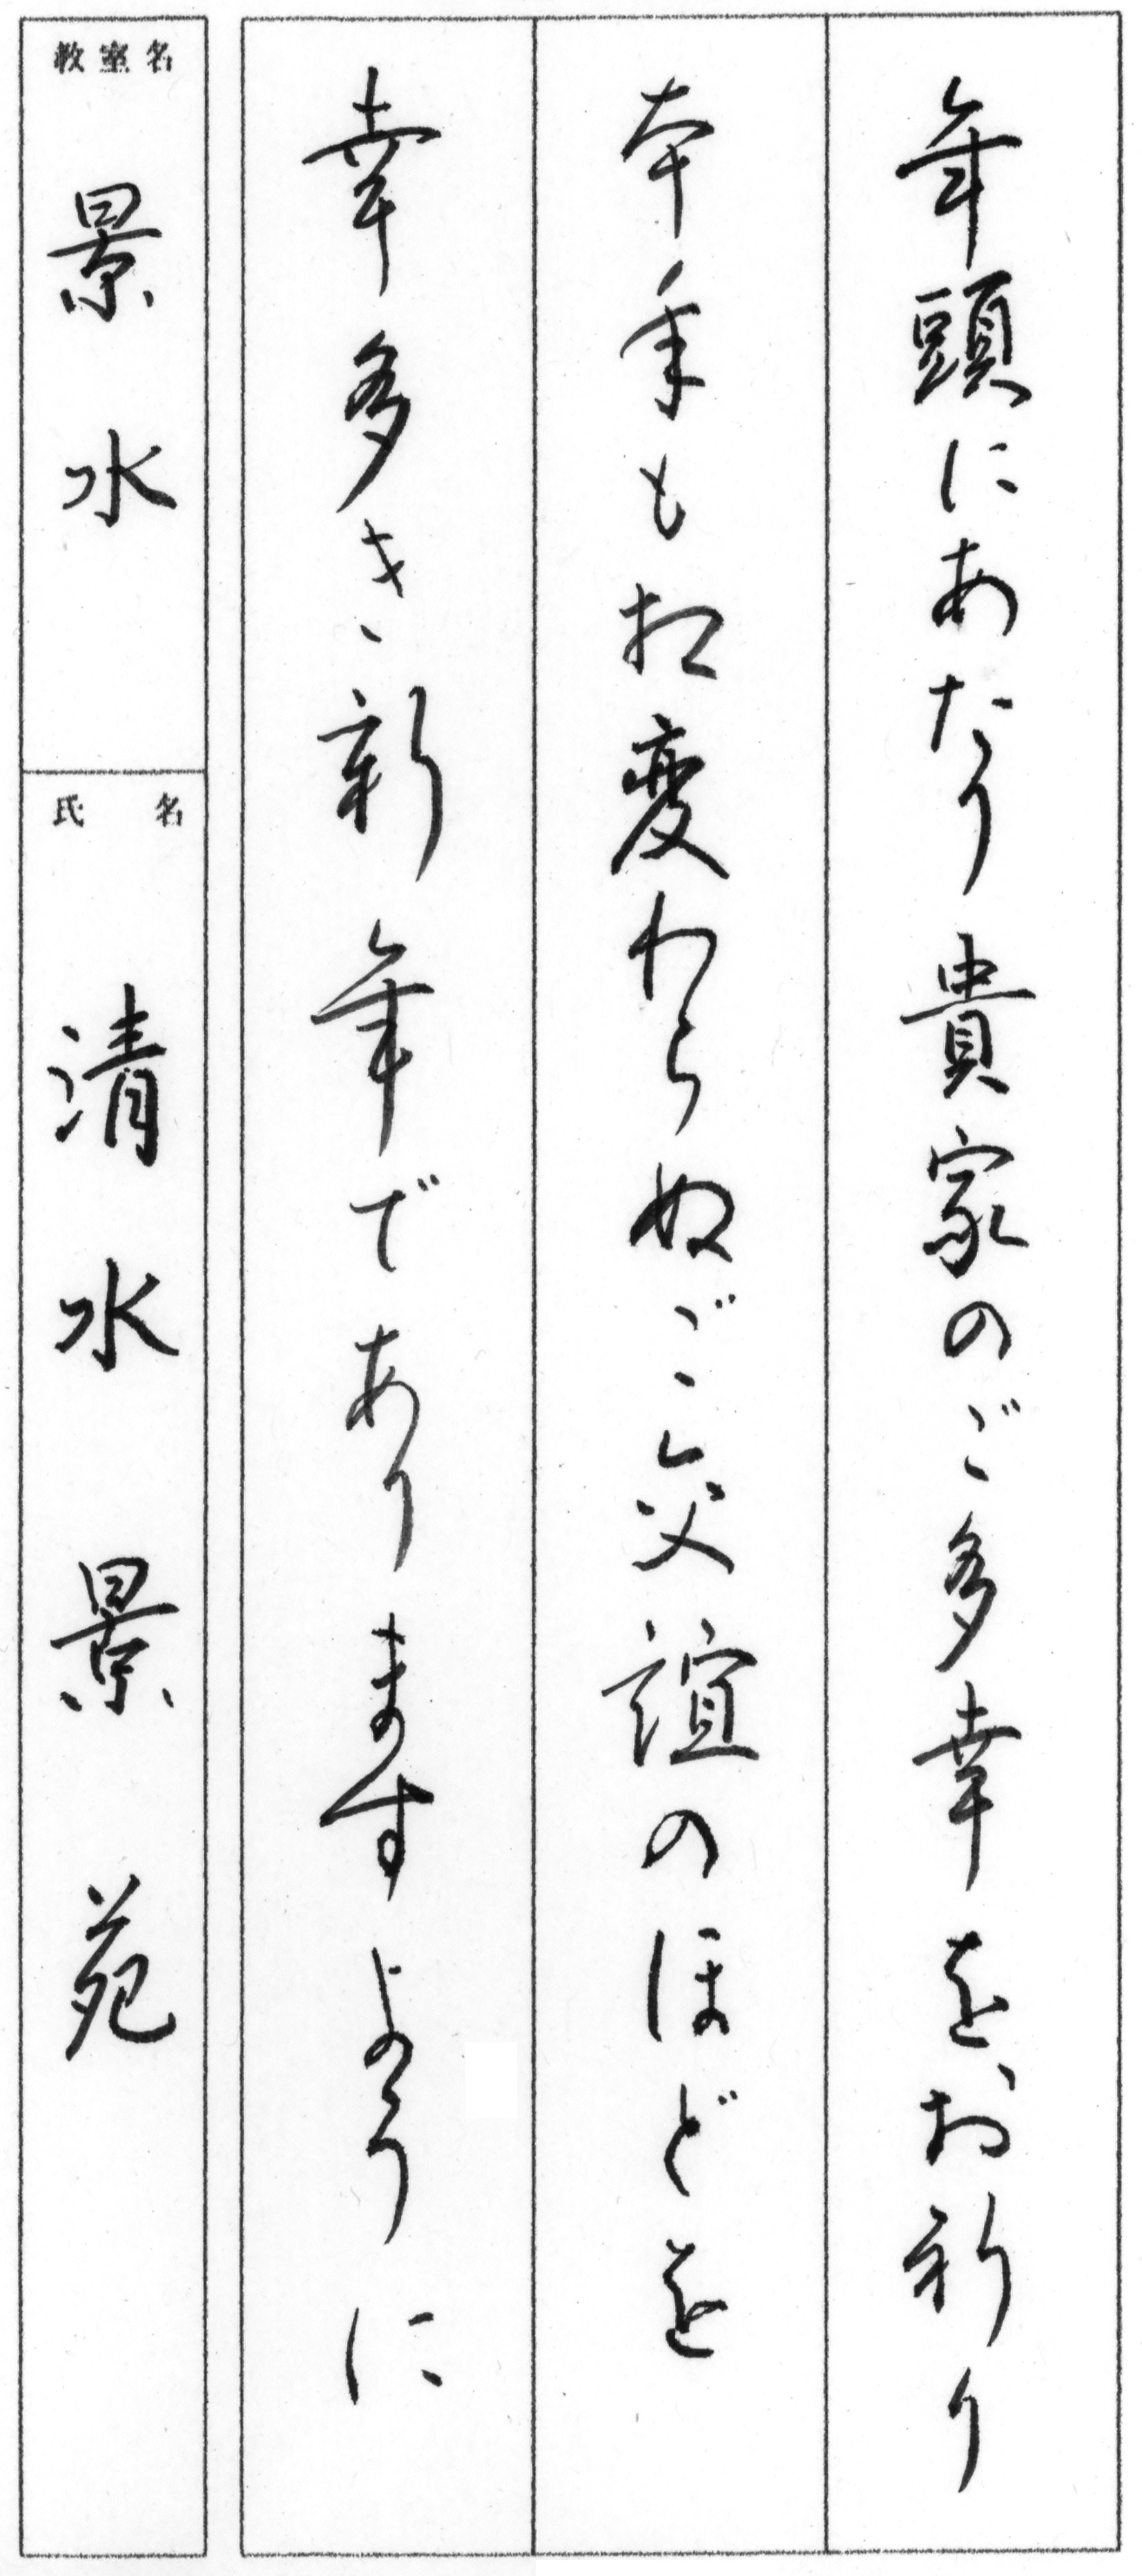 年頭にあたり貴家のご多幸をお祈り
本年も相変わらぬご交誼のほどを
幸多き新年でありますように
教室名
景水
氏名
清水景苑